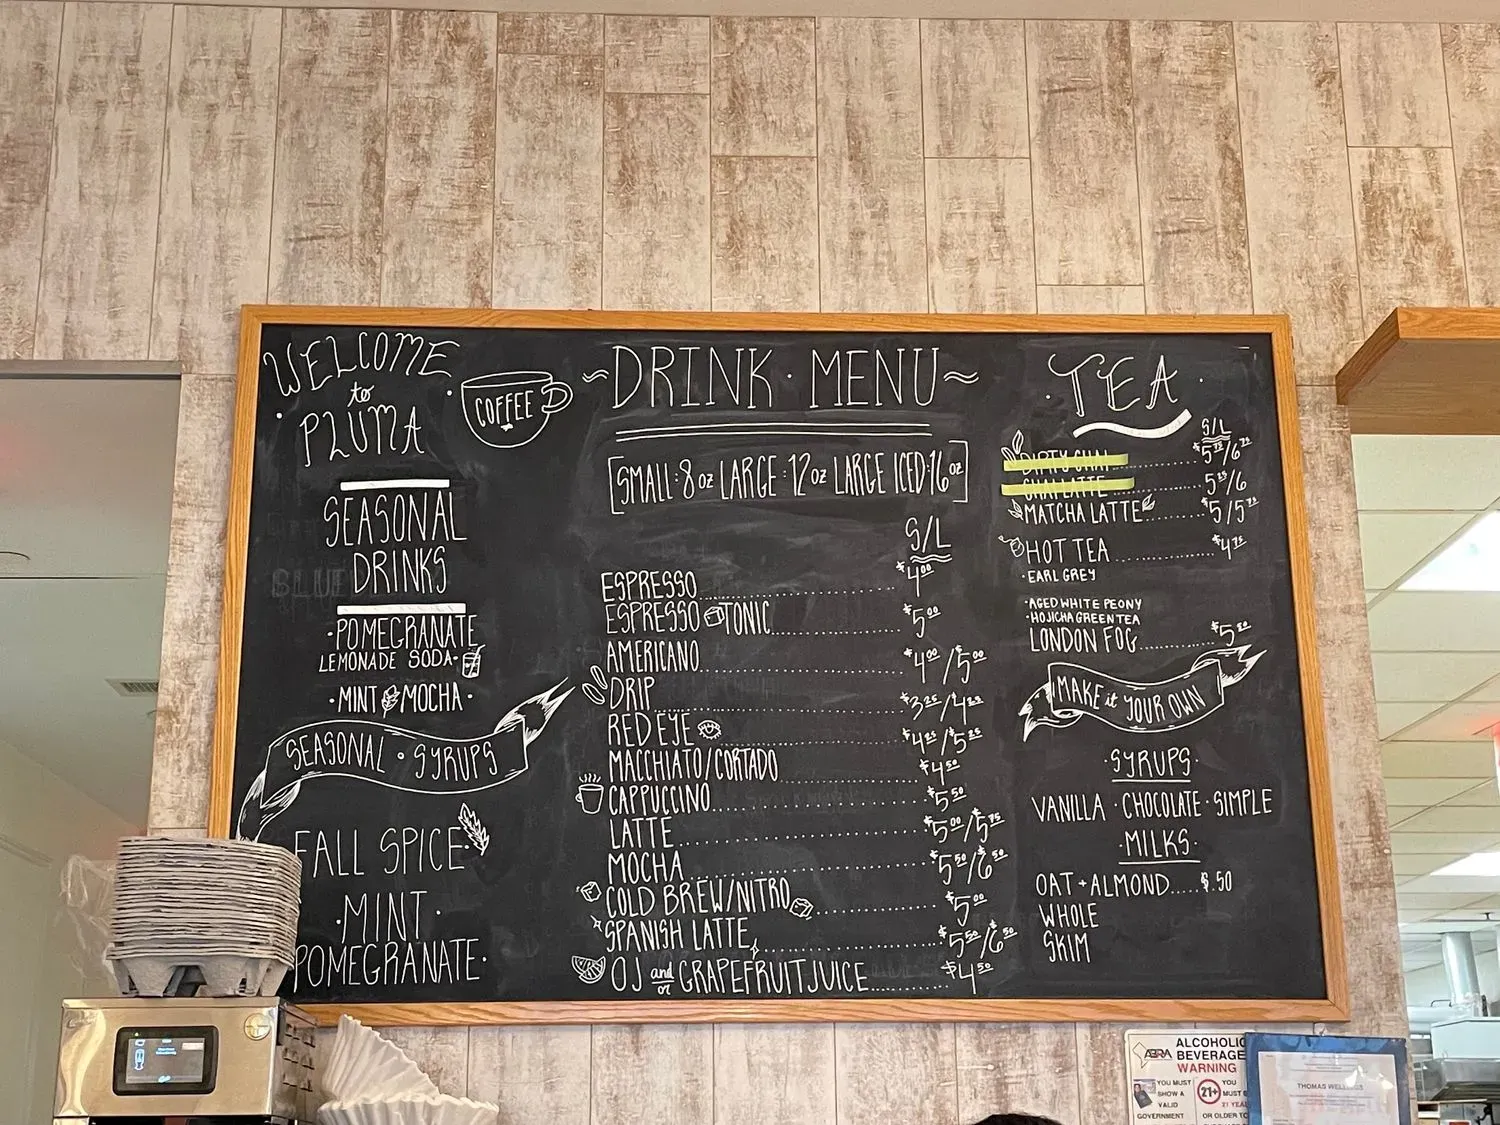 WELCOME
to
PLUMA
COFFEE
SEASONAL
DRINKS
·POMEGRANATE
LEMONADE SODA·
·MINT MOCHA·
SEASONAL · SYRUPS
FALL SPICE·
·MINT·
POMEGRANATE·
~DRINK · MENU~
[SMALL:8oz LARGE:12oz LARGE ICED:16oz]
S/L
ESPRESSO $4.00
ESPRESSO TONIC $5.00
AMERICANO $4.00/$5.00
DRIP
RED EYE $4.25/$5.25
MACCHIATO/CORTADO $4.50
CAPPUCCINO $5.50
LATTE $5.00/$5.75
MOCHA $5.50/$6.50
COLD BREW/NITRO $5.00
SPANISH LATTE $5.50/$6.50
OJ and or GRAPEFRUIT JUICE $4.50
·TEA·
S/L
DIRTY CHAI $5.75/6.75
CHAI LATTE 5.25/6
MATCHA LATTE $5/5.75
HOT TEA $4.75
·EARL GREY
·AGED WHITE PEONY
·HOJICHA GREEN TEA
LONDON FOG
MAKE it YOUR OWN
·SYRUPS·
VANILLA · CHOCOLATE · SIMPLE
·MILKS·
OAT + ALMOND.....$.50
WHOLE
SKIM
ABRA
ALCOHOLIC
BEVERAGE
WARNING
YOU MUST
SHOW A
VALID
GOVERNMENT
21+
YOU
21 YEA
OR OLDER TO